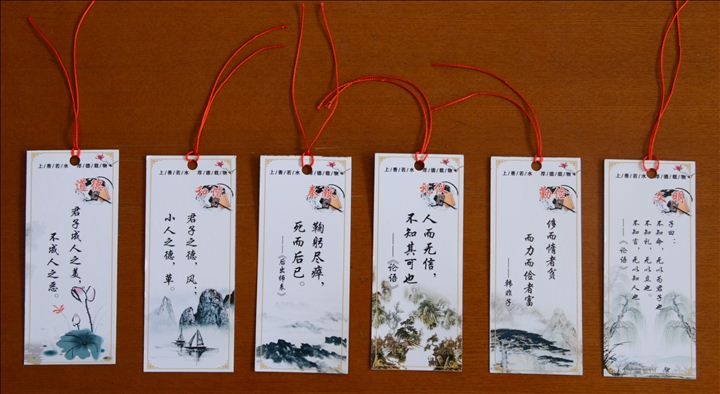 上/善/若/水 厚/德/载/物
道德
君子成人之美,
不成人之恶。
上/善/若/水 厚/德/载/物
君子之德,风;
小人之德,草。
上/善/若/水 厚/德/载/物
奉献
鞠躬尽瘁,
死而后已。
——《后出师表》
上/善/若/水 厚/德/载/物
人而无信,
不知其可也
——《论语》
上/善/若/水 厚/德/载/物
勤俭
侈而惰者贫
而力而俭者富
——韩非子
上/善/若/水 厚/德/载/物
文明
子曰:
不知命,无以为君子也
不知礼,无以立也。
不知言,无以知人也
——《论语》